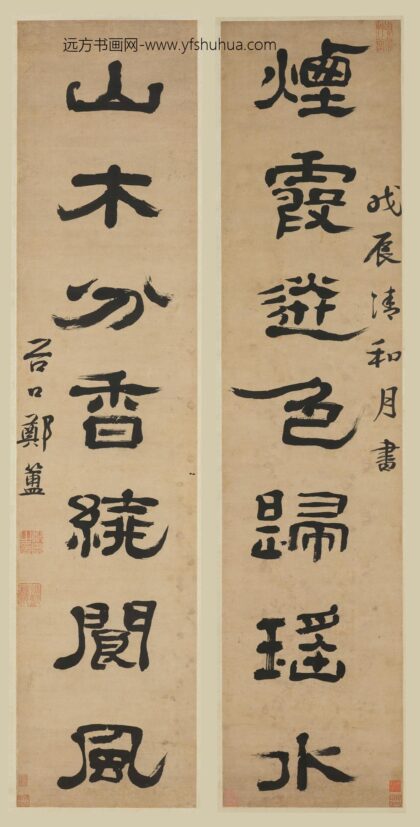 远方书画网-www.yfshuhua.com
煙霞迸色歸瑤水
戊辰清和月書
山木分香繞閬風
谷口鄭簠